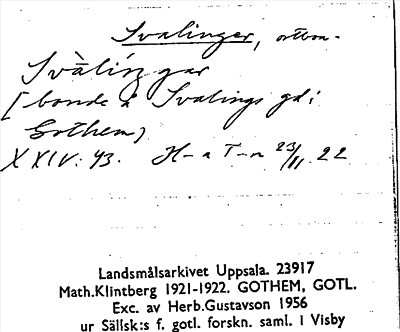 Svalinger, ortbon-
Svàlíngar
[bonde å Svalings gd i
Gothem)
XXIV: 43. H-a T-n 23/11 22
Landsmålsarkivet Uppsala. 23917
Math.Klintberg 1921-1922. GOTHEM, GOTL.
Exc. av Herb.Gustavson 1956
ur Sällsk:s f. gotl. forskn. saml. i Visby